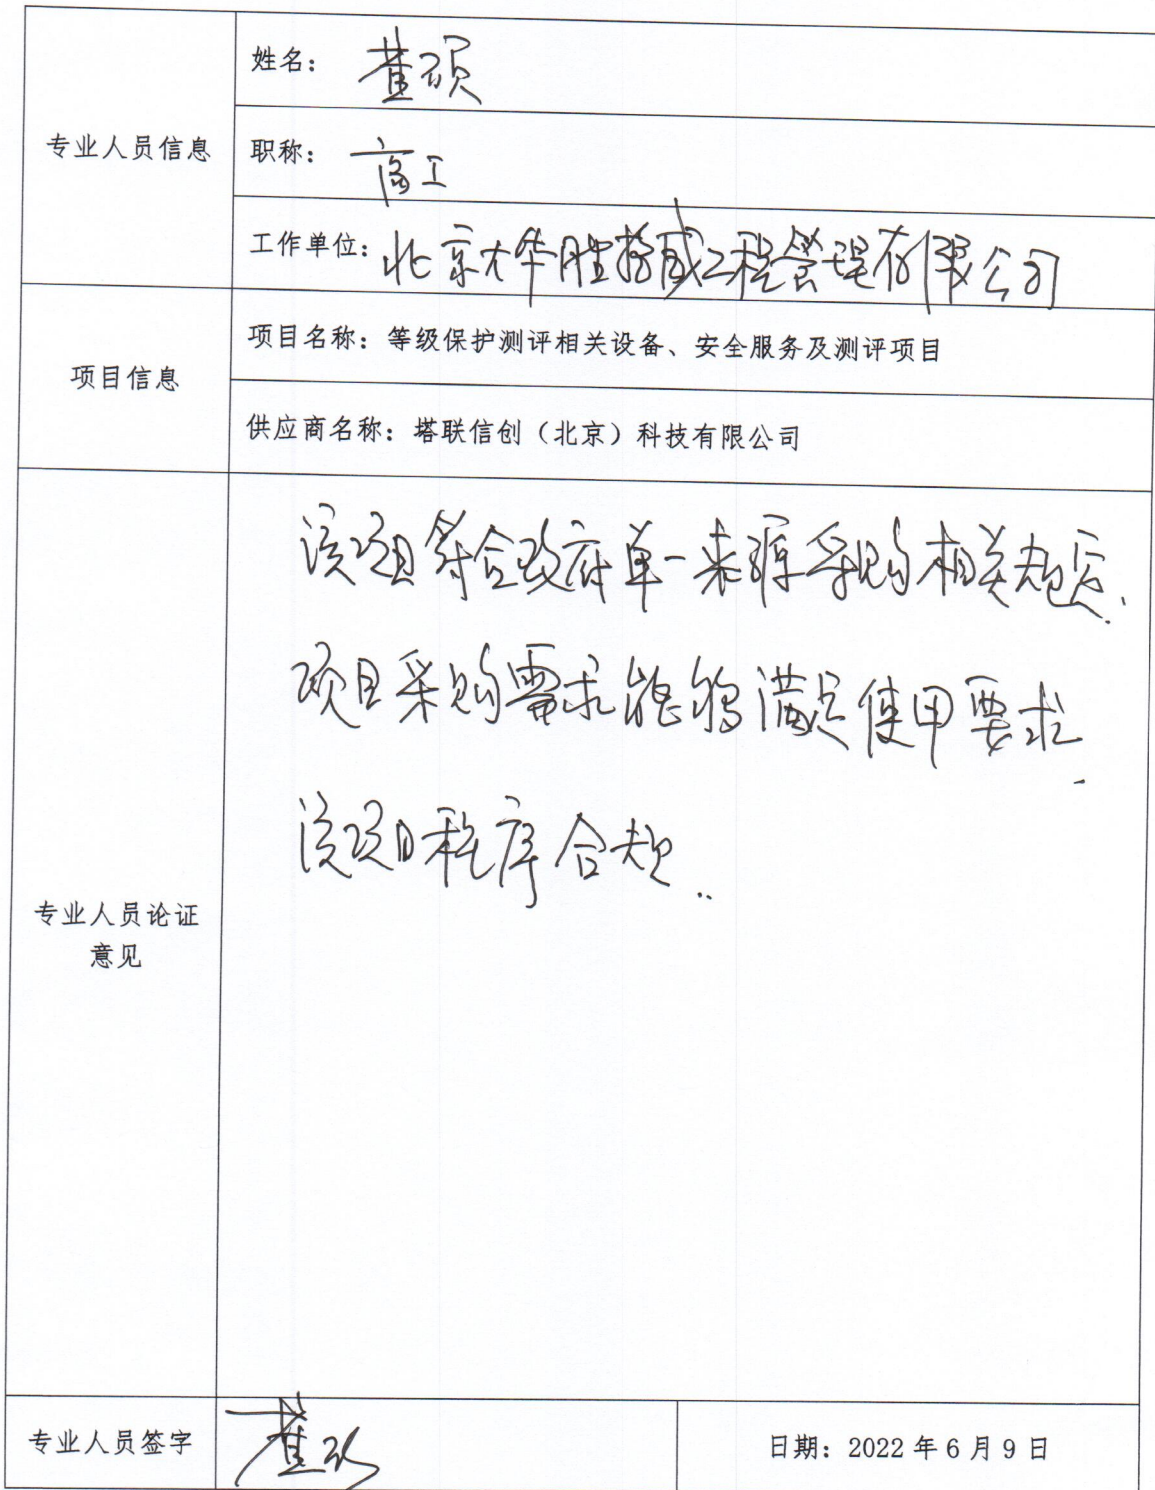 专业人员信息
姓名：黄硕
职称：高工
工作单位：北京大华胜扬威工程管理有限公司
项目信息
项目名称：等级保护测评相关设备、安全服务及测评项目
供应商名称：塔联信创（北京）科技有限公司
专业人员论证
意见
该项目符合政府单一来源采购相关规定.
项目采购需求能够满足使用要求.
该项目程序合规..
专业人员签字
日期：2022年6月9日